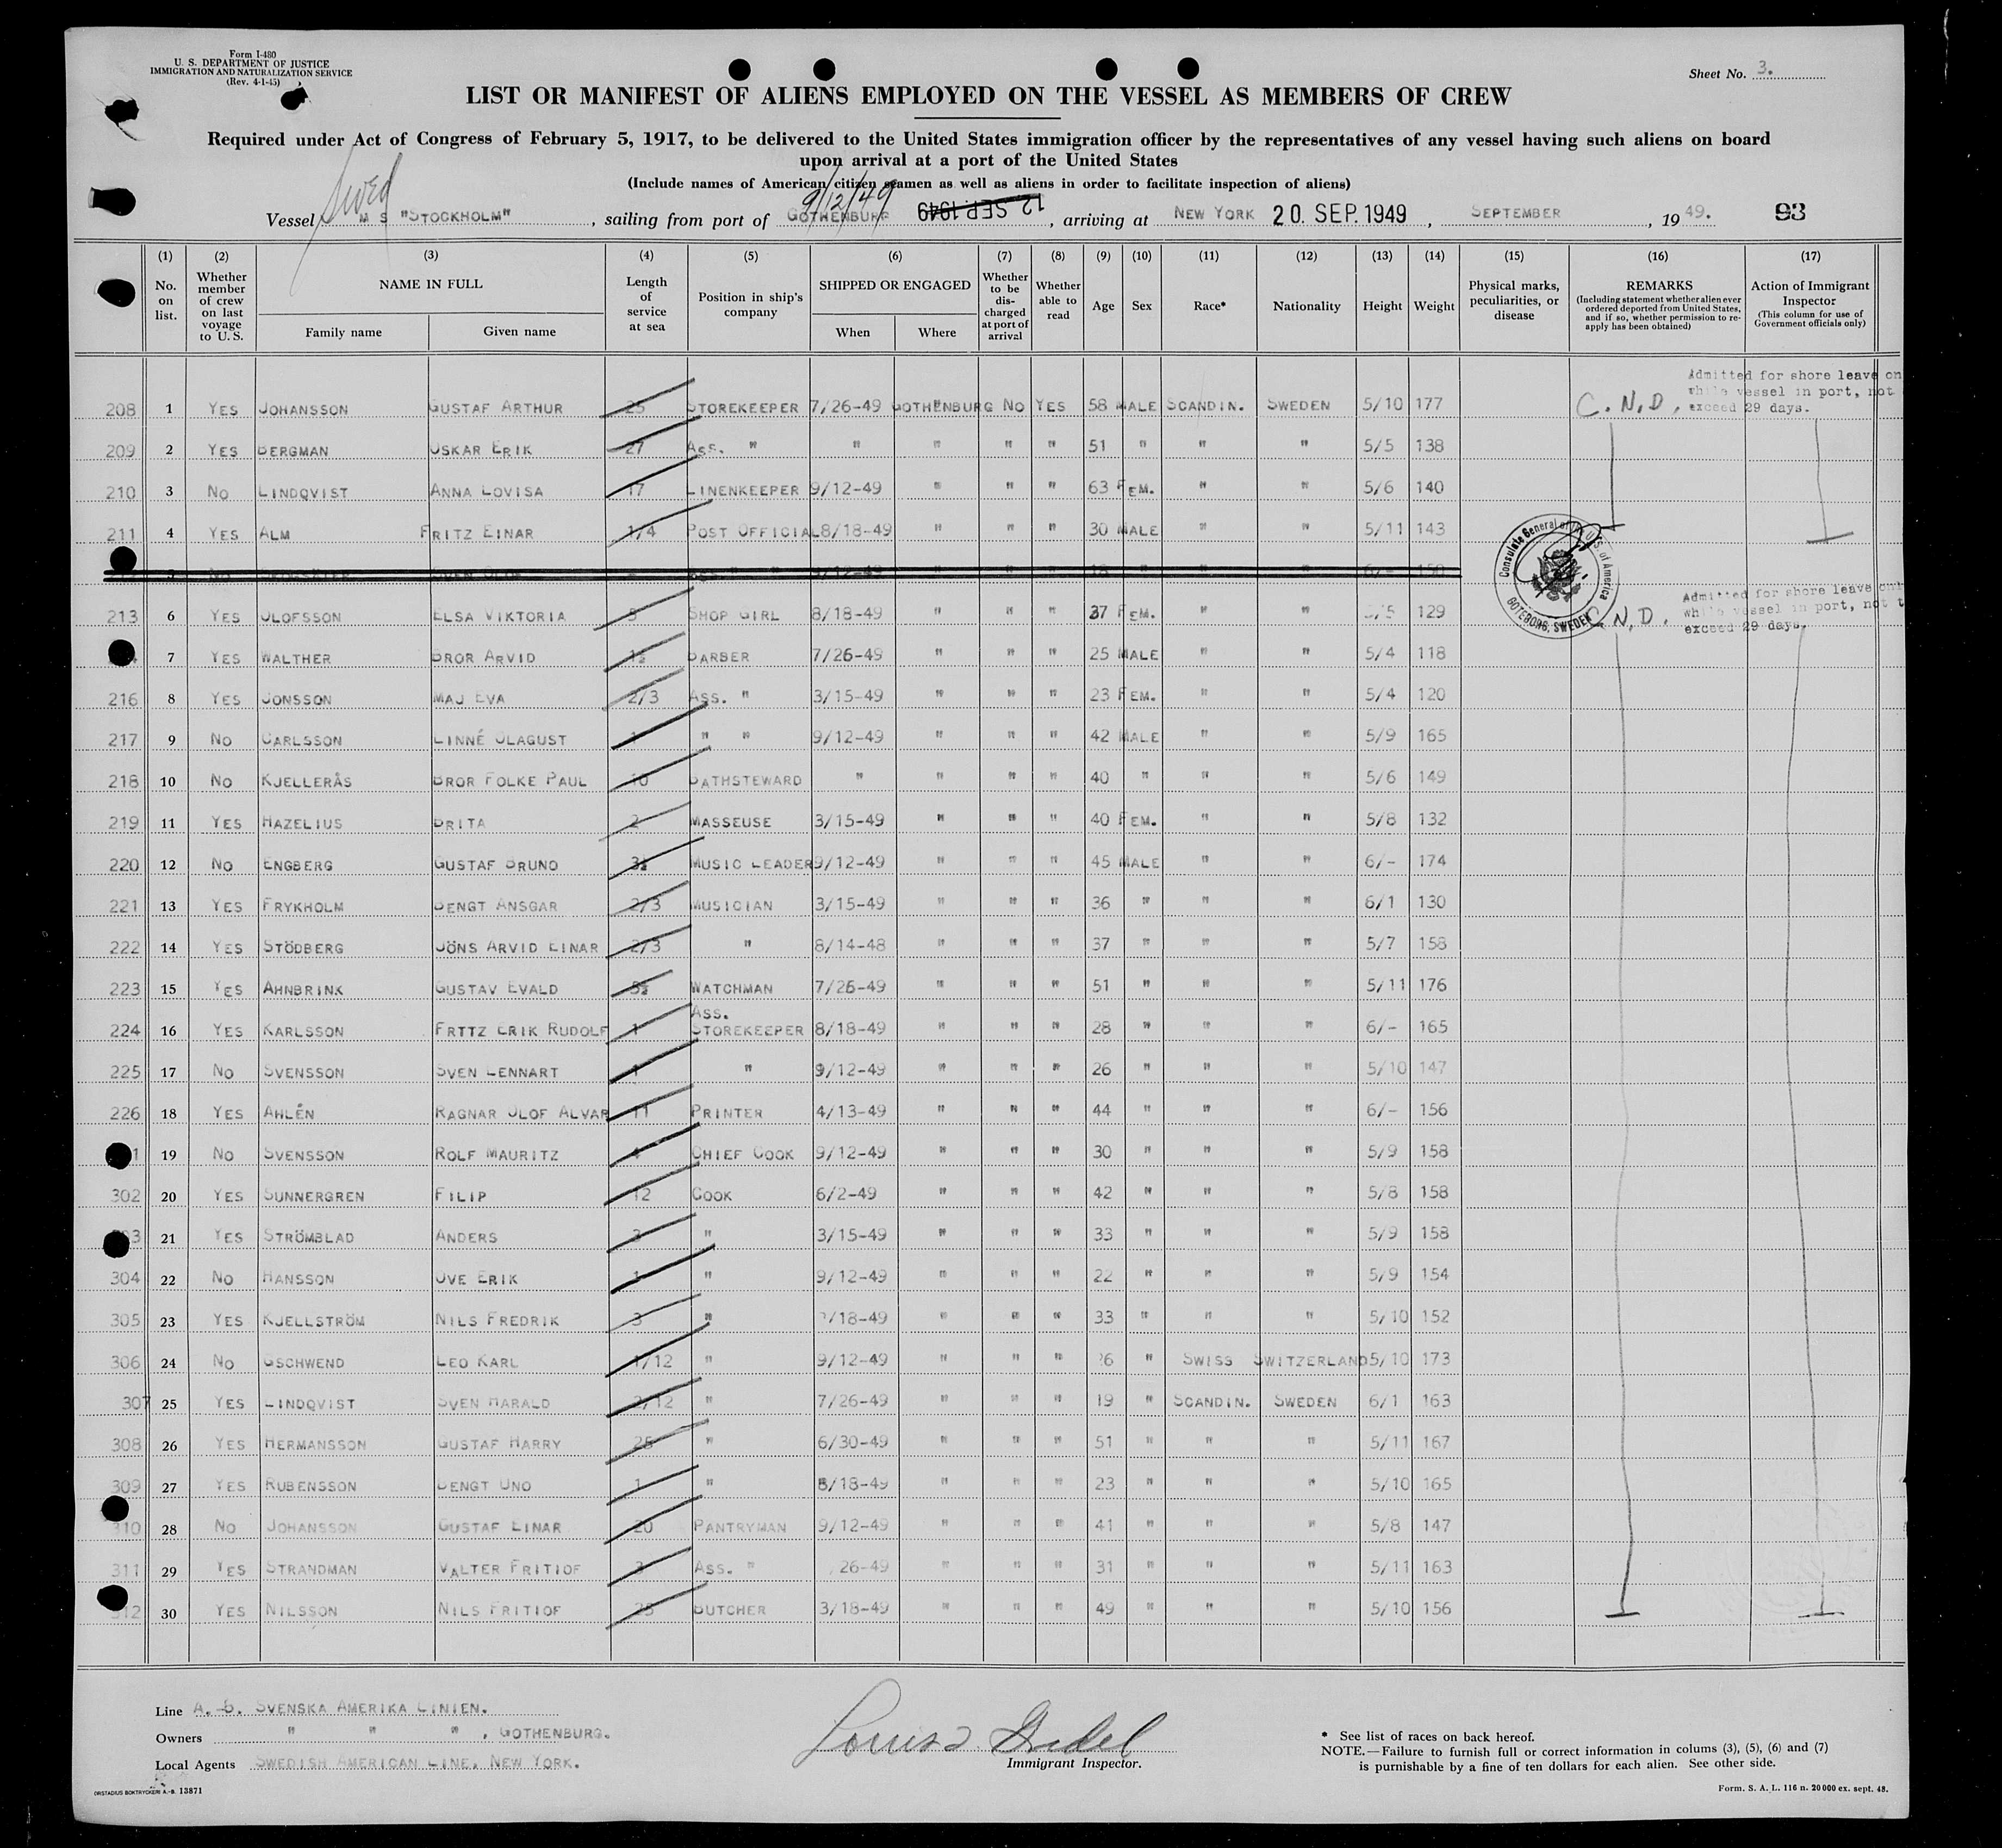 Form I-480
U. S. DEPARTMENT OF JUSTICE
IMMIGRATION AND NATURALIZATION SERVICE
(Rev. 4-1-45)
Sheet No. 3.
LIST OR MANIFEST OF ALIENS EMPLOYED ON THE VESSEL AS MEMBERS OF CREW
Required under Act of Congress of February 5, 1917, to be delivered to the United States immigration officer by the representatives of any vessel having such aliens on board
upon arrival at a port of the United States
(Include names of American citizen seamen as well as aliens in order to facilitate inspection of aliens)
Swed 9/12/49
Vessel M S "STOCKHOLM" , sailing from port of GOTHENBURG 12 SEP. 1949 , arriving at NEW YORK 20. SEP. 1949 , SEPTEMBER , 19 49. 93
(1) (2) (3) (4) (5) (6) (7) (8) (9) (10) (11) (12) (13) (14) (15) (16) (17)
No. on list. Whether member of crew on last voyage to U. S. NAME IN FULL Family name Given name Length of service at sea Position in ship's company SHIPPED OR ENGAGED When Where Whether to be discharged at port of arrival Whether able to read Age Sex Race* Nationality Height Weight Physical marks, peculiarities, or disease REMARKS (Including statement whether alien ever ordered deported from United States, and if so, whether permission to re-apply has been obtained) Action of Immigrant Inspector (This column for use of Government officials only)
Admitted for shore leave on
while vessel in port, not
exceed 29 days.
208 1 YES JOHANSSON GUSTAF ARTHUR 25 STOREKEEPER 7/26-49 GOTHENBURG NO YES 58 MALE SCANDIN. SWEDEN 5/10 177 C. N. D.
209 2 YES BERGMAN OSKAR ERIK 27 ASS. " " " " " 51 " " " 5/5 138
210 3 NO LINDQVIST ANNA LOVISA 17 LINENKEEPER 9/12-49 " " " 63 FEM. " " 5/6 140
211 4 YES ALM FRITZ EINAR 1/4 POST OFFICIAL 8/18-49 " " " 30 MALE " " 5/11 143
5 NO SVEN ASS. " " 9/12-49 " " " 18 " " " 6/- 150
Consulate General of of America
GÖTEBORG, SWEDEN
Admitted for shore leave onl
while vessel in port, not t
exceed 29 days.
213 6 YES OLOFSSON ELSA VIKTORIA SHOP GIRL 8/18-49 " " " 37 FEM. " " /5 129 C. N. D.
7 YES WALTHER BROR ARVID 1½ BARBER 7/26-49 " " " 25 MALE " " 5/4 118
216 8 YES JONSSON MAJ EVA 2/3 ASS. " 3/15-49 " " " 23 FEM. " " 5/4 120
217 9 NO CARLSSON LINNÉ OLAGUST 1 " " 9/12-49 " " " 42 MALE " " 5/9 165
218 10 NO KJELLERÅS BROR FOLKE PAUL 10 BATHSTEWARD " " " " 40 " " " 5/6 149
219 11 YES HAZELIUS BRITA 2 MASSEUSE 3/15-49 " " " 40 FEM. " " 5/8 132
220 12 NO ENGBERG GUSTAF BRUNO 3½ MUSIC LEADER 9/12-49 " " " 45 MALE " " 6/- 174
221 13 YES FRYKHOLM BENGT ANSGAR 2/3 MUSICIAN 3/15-49 " " " 36 " " " 6/1 130
222 14 YES STÖDBERG JÖNS ARVID EINAR 2/3 " 8/14-48 " " " 37 " " " 5/7 158
223 15 YES AHNBRINK GUSTAV EVALD 5½ WATCHMAN 7/26-49 " " " 51 " " " 5/11 176
224 16 YES KARLSSON FRTTZ ERIK RUDOLF 1 ASS. STOREKEEPER 8/18-49 " " " 28 " " " 6/- 165
225 17 NO SVENSSON SVEN LENNART 1 " 9/12-49 " " " 26 " " " 5/10 147
226 18 YES AHLÉN RAGNAR OLOF ALVAR 11 PRINTER 4/13-49 " " " 44 " " " 6/- 156
1 19 NO SVENSSON ROLF MAURITZ 4 CHIEF COOK 9/12-49 " " " 30 " " " 5/9 158
302 20 YES SUNNERGREN FILIP 12 COOK 6/2-49 " " " 42 " " " 5/8 158
3 21 YES STRÖMBLAD ANDERS 3 " 3/15-49 " " " 33 " " " 5/9 158
304 22 NO HANSSON OVE ERIK 1 " 9/12-49 " " " 22 " " " 5/9 154
305 23 YES KJELLSTRÖM NILS FREDRIK 3 " /18-49 " " " 33 " " " 5/10 152
306 24 NO GSCHWEND LEO KARL 1/12 " 9/12-49 " " " 26 " SWISS SWITZERLAND 5/10 173
307 25 YES LINDQVIST SVEN HARALD 2/12 " 7/26-49 " " " 19 " SCANDIN. SWEDEN 6/1 163
308 26 YES HERMANSSON GUSTAF HARRY 25 " 6/30-49 " " " 51 " " " 5/11 167
309 27 YES RUBENSSON BENGT UNO 1 " 8/18-49 " " " 23 " " " 5/10 165
310 28 NO JOHANSSON GUSTAF EINAR 20 PANTRYMAN 9/12-49 " " " 41 " " " 5/8 147
311 29 YES STRANDMAN VALTER FRITIOF 3 ASS. " 26-49 " " " 31 " " " 5/11 163
312 30 YES NILSSON NILS FRITIOF 25 BUTCHER 3/18-49 " " " 49 " " " 5/10 156
Line A.-B. SVENSKA AMERIKA LINIEN.
Owners " " " , GOTHENBURG.
Local Agents SWEDISH AMERICAN LINE, NEW YORK.
Immigrant Inspector.
* See list of races on back hereof.
NOTE.—Failure to furnish full or correct information in colums (3), (5), (6) and (7)
is purnishable by a fine of ten dollars for each alien. See other side.
ORSTADIUS BOKTRYCKERI A.-B. 13871
Form. S. A. L. 116 n. 20000 ex. sept. 48.